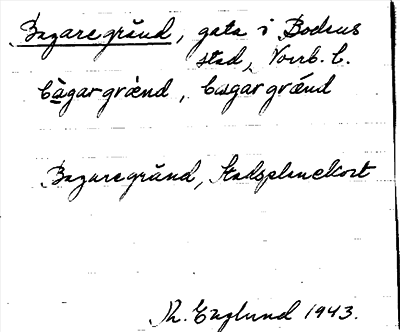 Bagaregränd, gata i Bodens
stad, Norrb. l.
bàgargrä̀nd, bagargrä́nd
Bagaregränd, Stadsplanekort
Th. Englund 1943.